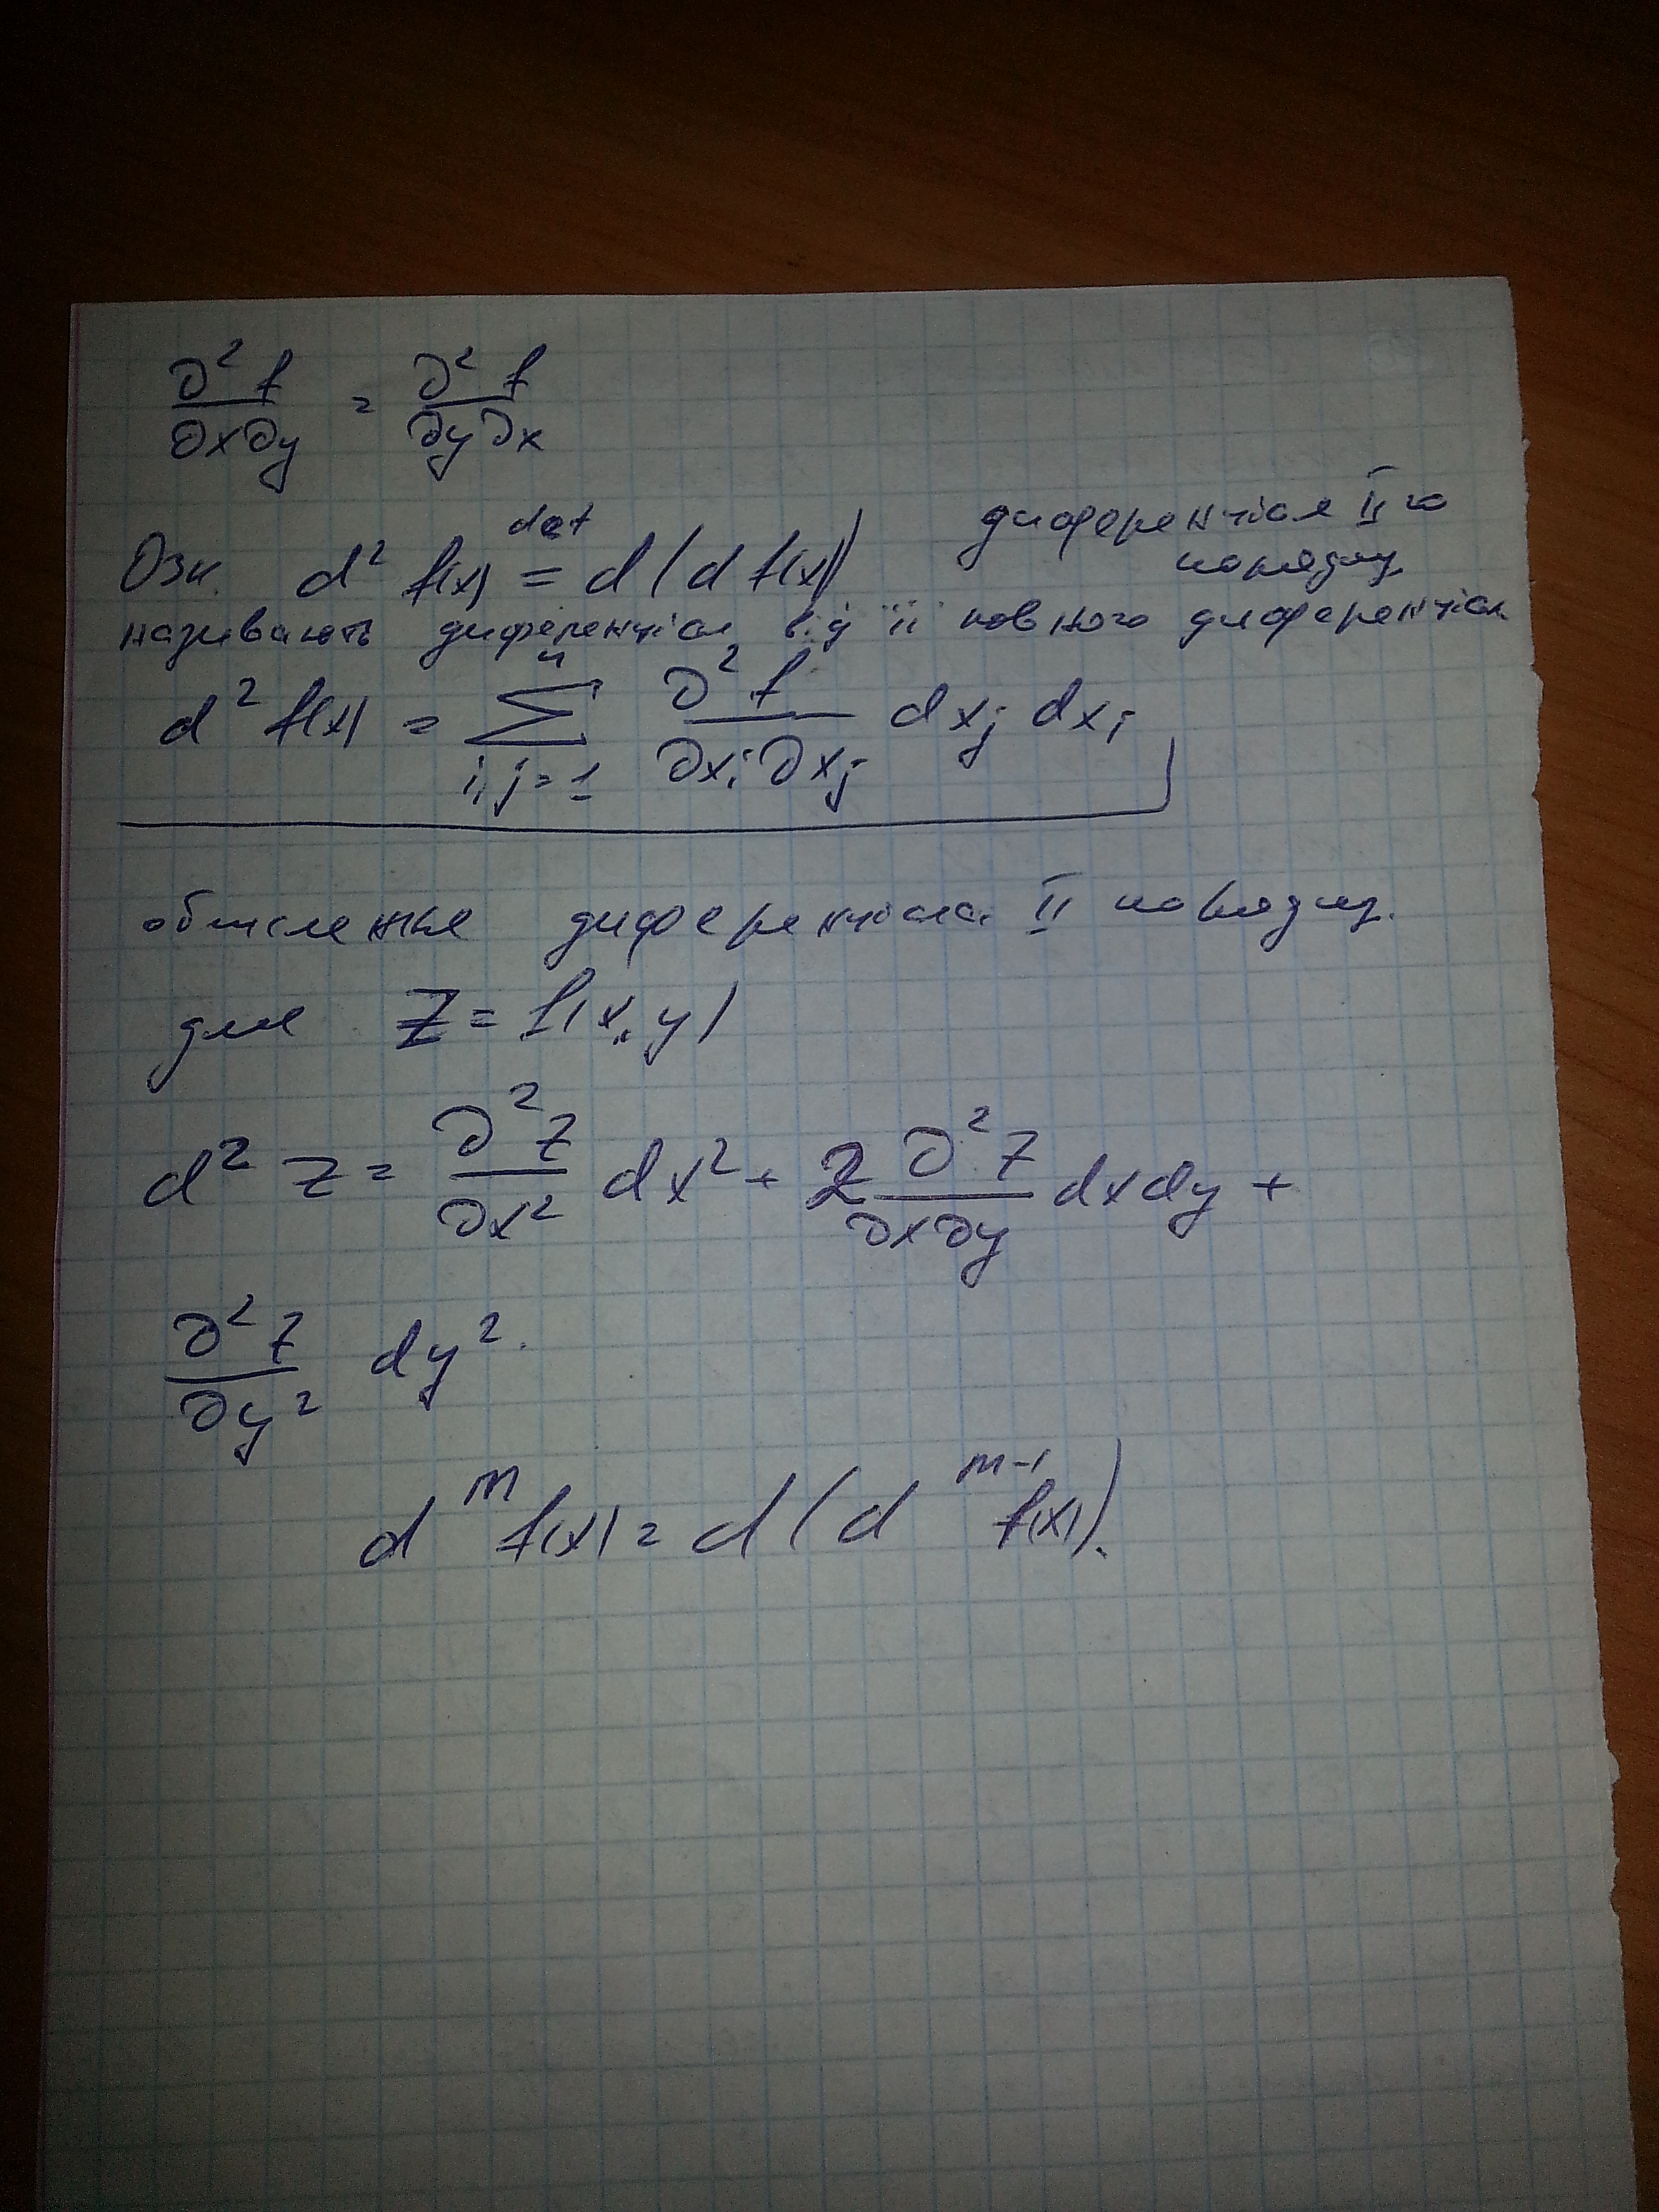 ∂²f/∂x∂y = ∂²f/∂y∂x
Озн. d² f(x) =^{def} d(d f(x)) диференціал II го
порядку
називають диференціал від її повного диференціал
d² f(x) = ∑_{i,j=1}^{n} ∂²f/∂x_i∂x_j dx_j dx_i
обчислення диференціала II порядку.
для Z = f(x,y)
d² z = ∂²z/∂x² dx² + 2 ∂²z/∂x∂y dxdy +
∂²z/∂y² dy².
d^m f(x) = d(d^{m-1} f(x)).